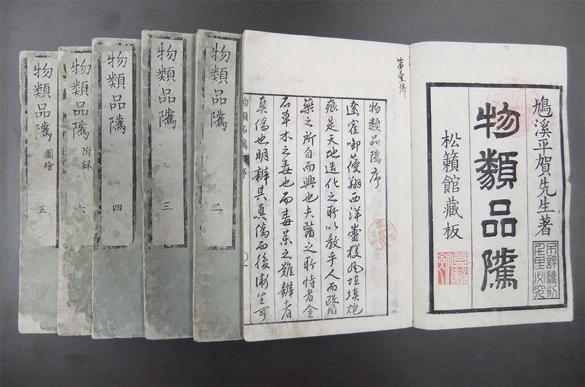 鳩溪平賀先生著
物類品隲
松籟館藏板
物類品隲序
是天地造化之所以教乎人而醫
藥之所自而興也夫醫之所恃者金
石草木之毒也而毒藥之難辨者
真僞也明辨其真僞而後
物類品隲 序
物類品隲 二
物類品隲 三
物類品隲 四
物類品隲 附録 六
物類品隲 圖繪 五